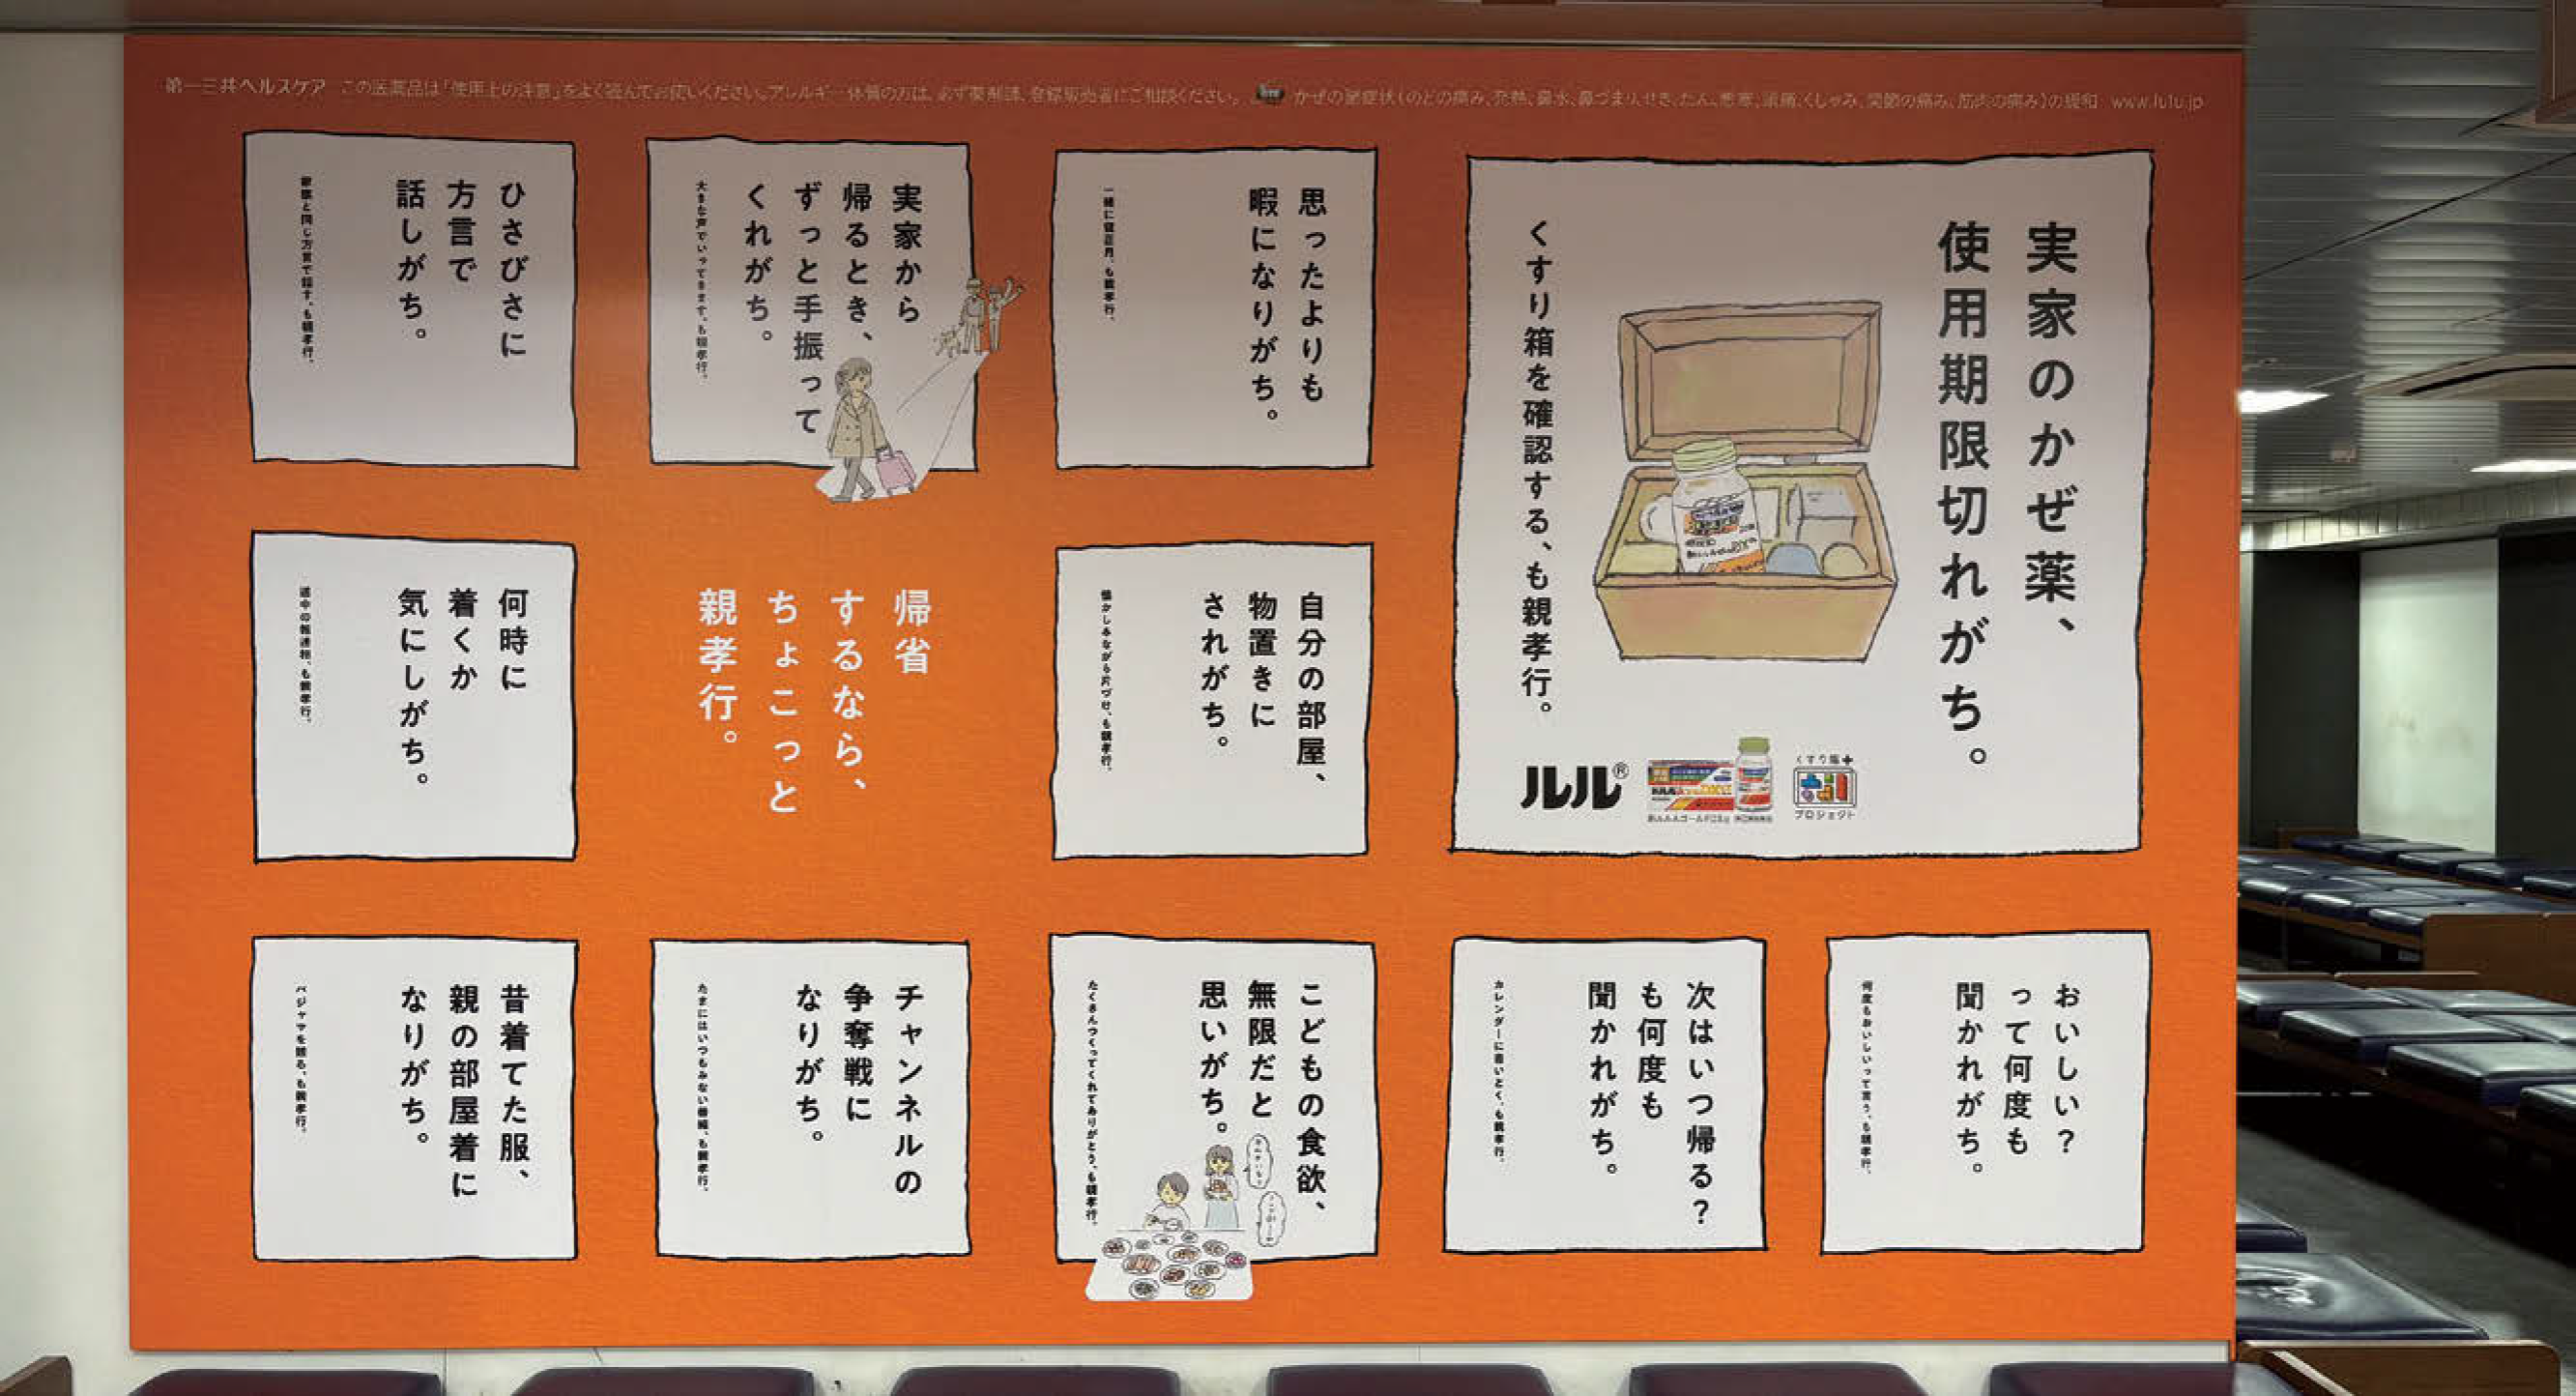 第一三共ヘルスケア この医薬品は「使用上の注意」をよく読んでお使いください。アレルギー体質の方は、必ず薬剤師、登録販売者にご相談ください。 かぜの諸症状(のどの痛み、発熱、鼻水、鼻づまり、せき、たん、悪寒、頭痛、くしゃみ、関節の痛み、筋肉の痛み)の緩和 www.lulu.jp
実家のかぜ薬、
使用期限切れがち。
くすり箱を確認する、も親孝行。
ルル®
くすり箱+
プロジェクト
思ったよりも
暇になりがち。
一緒に寝正月、も親孝行。
実家から
帰るとき、
ずっと手振って
くれがち。
大きな声でいってきます、も親孝行。
ひさびさに
方言で
話しがち。
家族と同じ方言で話す、も親孝行。
自分の部屋、
物置きに
されがち。
懐かしみながら片づけ、も親孝行。
帰省
するなら、
ちょこっと
親孝行。
何時に
着くか
気にしがち。
道中の報連相、も親孝行。
おいしい?
って何度も
聞かれがち。
何度もおいしいって言う、も親孝行。
次はいつ帰る?
も何度も
聞かれがち。
カレンダーに書いとく、も親孝行。
こどもの食欲、
無限だと
思いがち。
たくさんつくってくれてありがとう、も親孝行。
チャンネルの
争奪戦に
なりがち。
たまにはいつもみない番組、も親孝行。
昔着てた服、
親の部屋着に
なりがち。
パジャマを贈る、も親孝行。